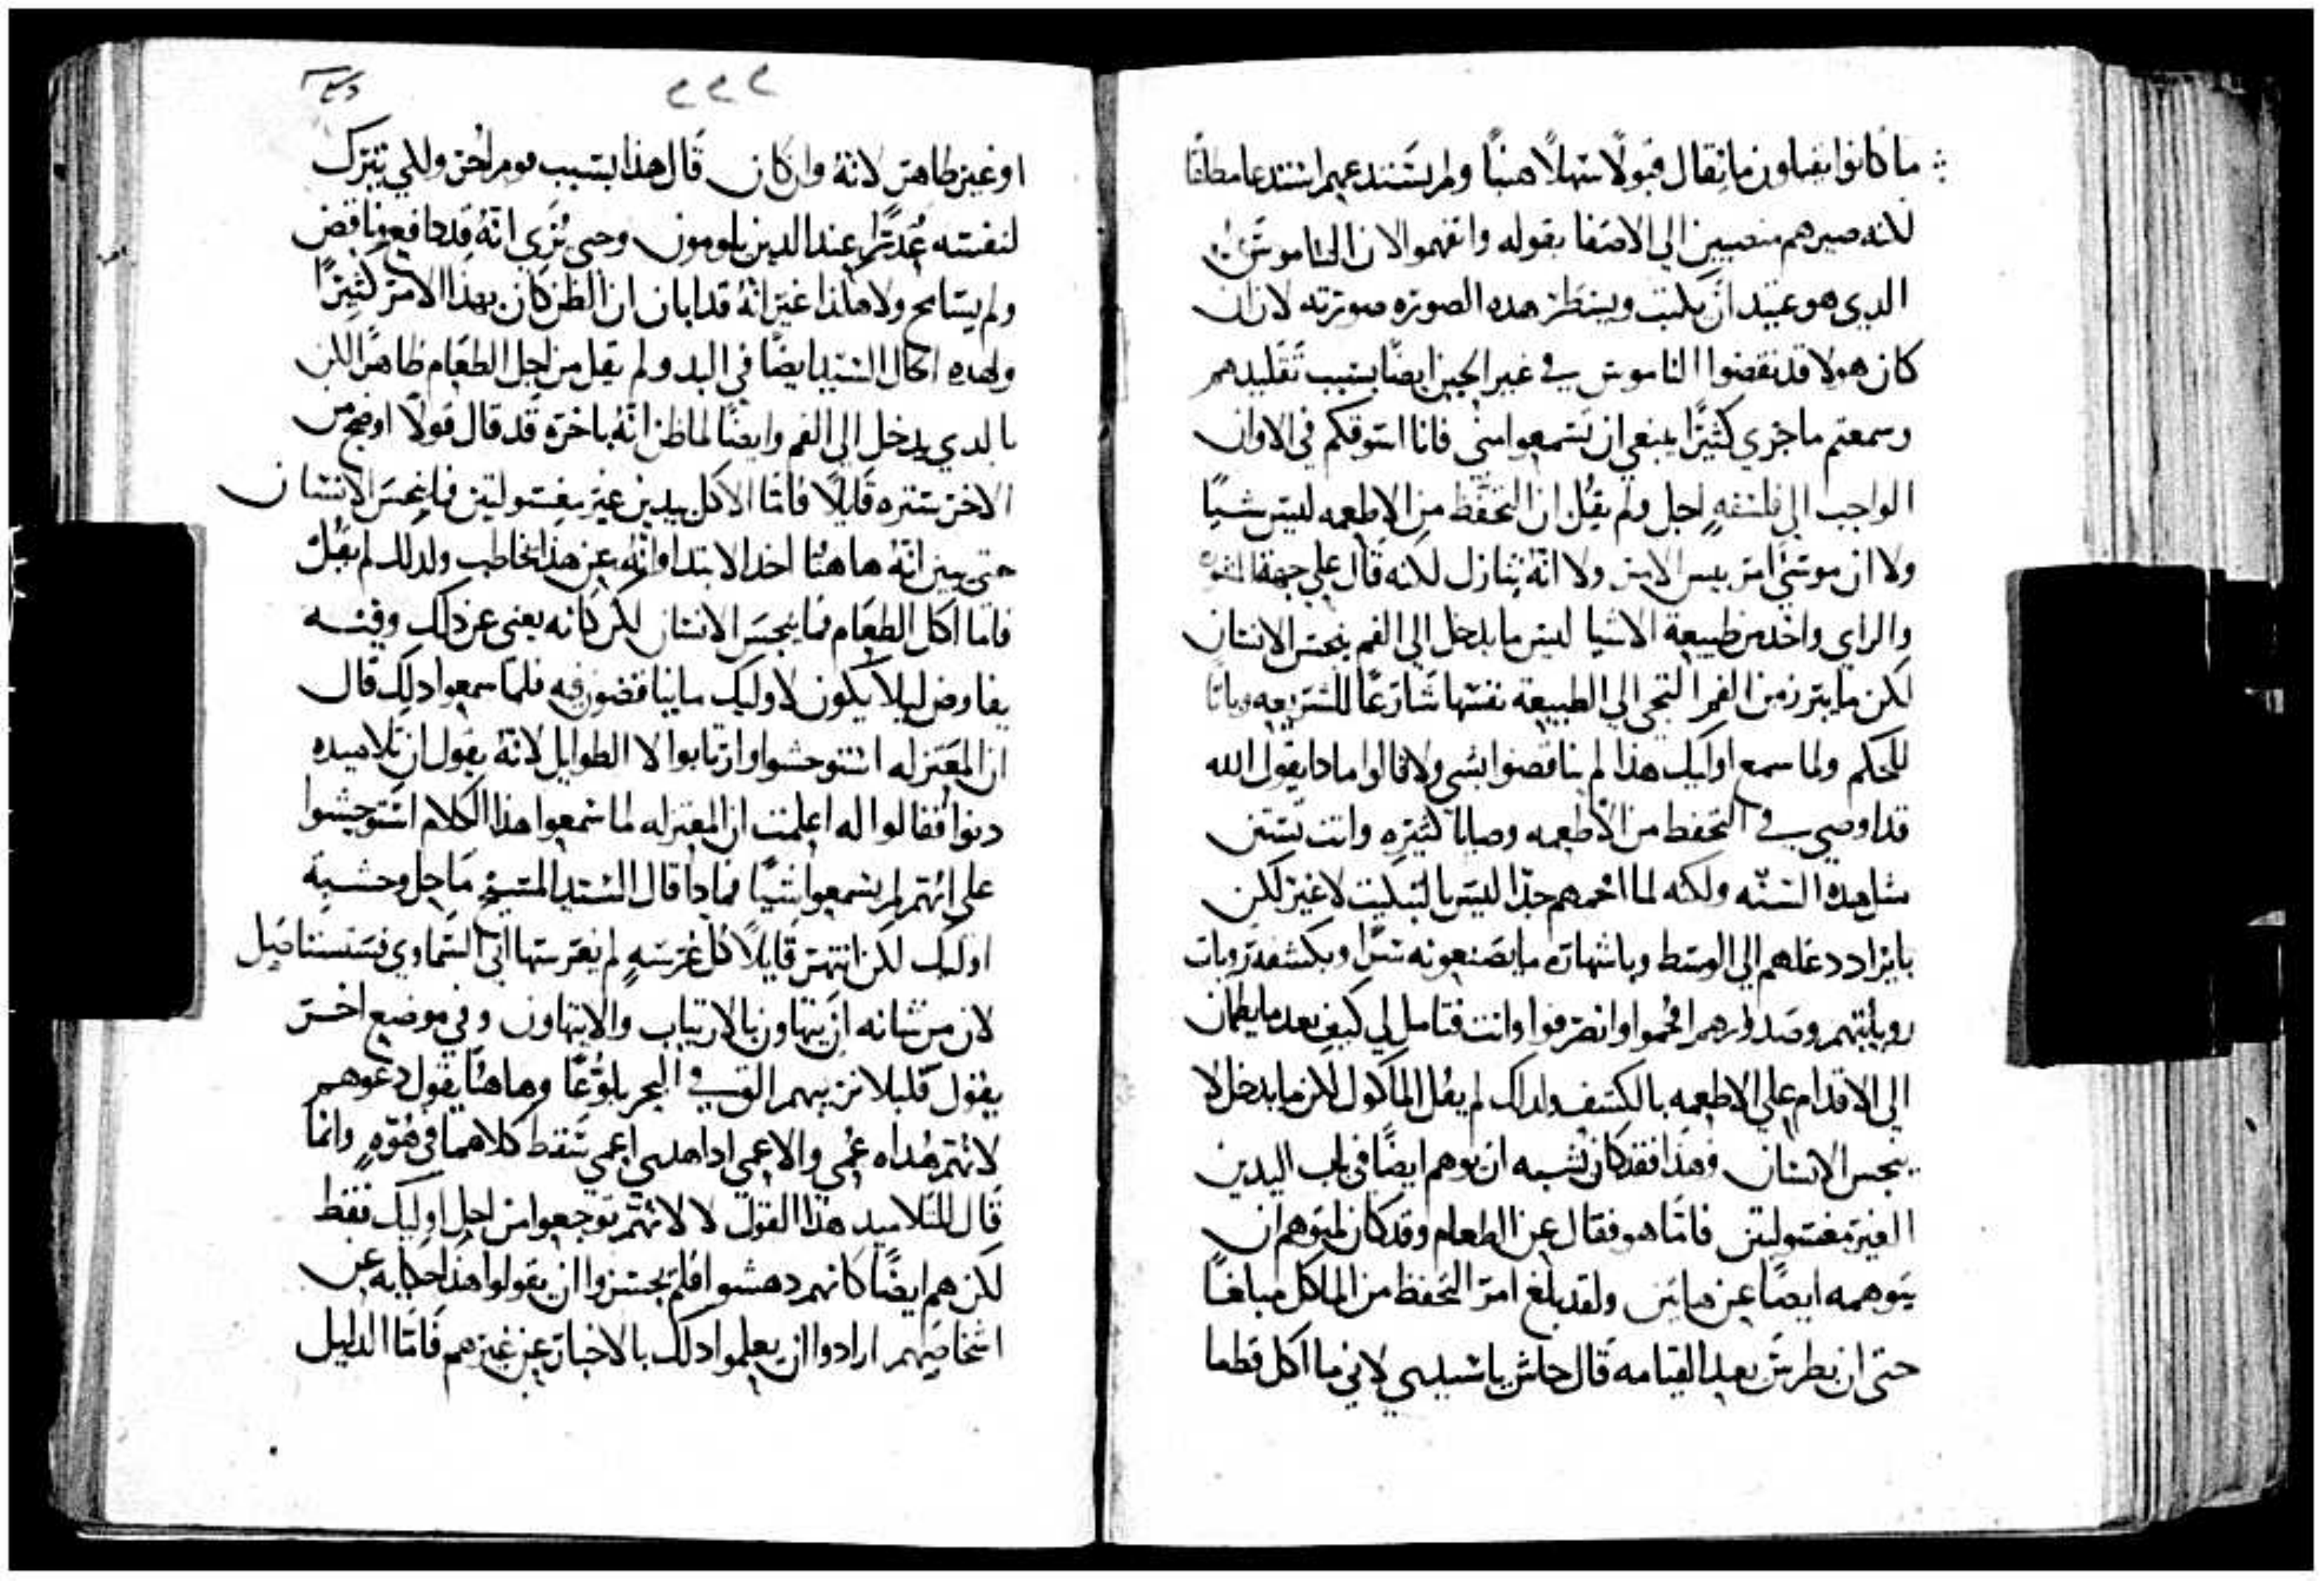 ما كانوا يقبلون ما يقال قبولًا سهلًا هينًا ولم يستدعهم استدعا مطلقًا
لكنه صيرهم منصبين الي الاصغا بقوله وافهموا لان الناموس
الدي هو عتيد ان يكتب وينتظر هده الصوره صورته لان ان
كان هولا قد نقضوا الناموس في غير الحين ايضًا بسبب تقليدهم
وسمعتم ما جري كثيرًا ينبغي ان تسمعوا مني فانا اسوقكم في الاوان
الواجب الي فلسفهٍ اجل ولم يقل ان التحفظ من الاطعمه ليس شيًا
ولا ان موسي امر بيس الامر ولا انه تنازل لكنه قال علي جهة
والراي واخد من طبيعة الاشيا ليس ما يدخل الي الفم ينجس الانسان
لكن ما يبرز من الفم التجي الي الطبيعة نفسها شارعًا للشريعه وباتًا
للحكم ولما سمع اوليك هذا لم يناقضوا بشي ولا قالوا مادا يقول الله
قد اوصي في التحفظ من الاطعمه وصايا كثيره وانت تستن
مثل هده السنه ولكنه لما افحمهم جدًا ليس بالتبكيت لا غير لكن
بايراد دغلهم الي الوسط وباشهاره ما يصنعونه سرًا وبكشفه رويات
روياتهم وصدورهم افحموا وانصرفوا وانت فتامل لي كيف بعد ما يطمان
الي الاقدام علي الاطعمه بالكشف ولدلك لم يقل الماكول لكن ما يدخل لا
ينجس الانسان وهذا فقد كان يشبه ان يوهم ايضًا في باب اليدين
الغير مغسولتين فاما هو فقال عن الطعام وقد كان لمتوهم ان
يتوهمه ايضًا عن هاتين ولقد بلغ امر التحفظ من الماكل مبلغًا
حتي ان بطرس بعد القيامه قال حاش يا سيدي لاني ما اكل قط ما
٢٢٢
او غير طاهر لانهُ وان كان قال هذا بسبب قوم اخر وللي يترك
لنفسه عُدرًا عند الدين يلومون وحتي يُري انه قد دافع وناقض
ولم يتسامح ولا هكذا غير انهُ قد ابان ان الظن كان بهذا الامر كثيرًا
ولهده الحال السيد ايضًا في البد ولم يقل من اجل الطعام ظاهرًا لكن
بالدي يدخل الي الفم وايضًا لما ظن انهُ باخرة قد قال قولًا اوضح من
الاخر ستره قليلًا فاما الاكل بيدين غير مغسولتين فما ينجس الانسان
حتي يبين انهُ هاهنا اخد الابتدا وانه عن هذا يخاطب ولدلك لم يقل
فاما اكل الطعام فما ينجس الانسان لكن كانه يعني عن دلك وفيه
يفاوض ليلا يكون لاوليك ما يناقضون فيه فلما سمعوا دلك قال
ان المعتزله استوحشوا وارتابوا لا الطوايل لانهُ يقول ان تلاميده
دنوا فقالوا له اعلمت ان المعتزله لما سمعوا هذا الكلام استوحشوا
علي انهم لم يسمعوا شيًا فمادا قال السيد المسيح ما حل وحشة
اوليك لكن انتهر قايلًا كل غرسهٍ لم يغرسها ابي السماوي فستستاصل
لان من شانه ان يتهاون بالارتياب والا يتهاون وفي موضع اخر
يقول قليلا نريبهم الق في البحر بلوغًا وهاهنا يقول دعوهم
لانهم هُداه عُمي والاعمي ادا هدي اعمي سقط كلاهما في هُوّهٍ وانما
قال للتلاميد هذا القول لا لانهم توجعوا من اجل اوليك فقط
لكن هم ايضًا كانهم دهشوا فلم يجسروا ان يقولوا هذا حكايه عن
اشخاصهم ارادوا ان يعلموا دلك بالاخبار عن غيرهم فاما الدليل